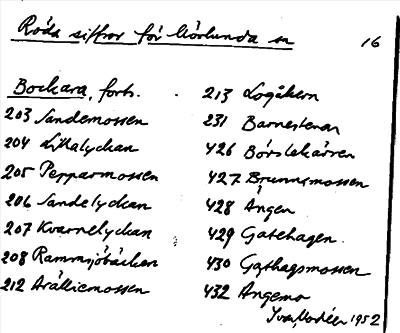 Röda siffror för Mörlunda sn
16
Bockara, forts.
203 Sandemossen
204 Lillalyckan
205 Pepparmossen
206 Sandelyckan
207 Kvarnelyckan
208 Rammsjöbäcken
212
213 Logåkern
231 Barnestenen
426 Börslekärren
427 Brunnsmossen
428 Ängen
429 Gatehagen
430 Gathagsmossen
432 Ängemo
1952